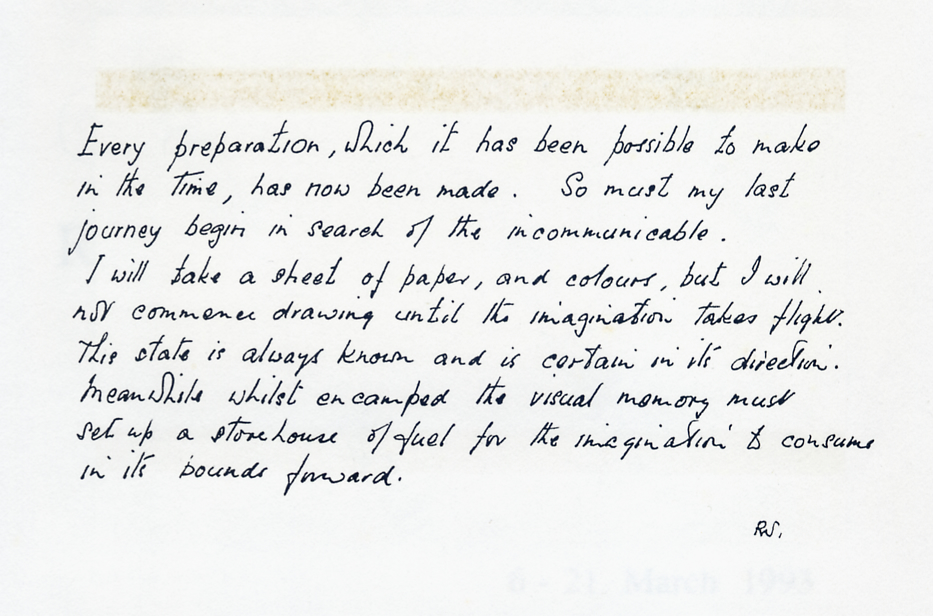 Every preparation, which it has been possible to make
in the time, has now been made. So must my last
journey begin in search of the incommunicable.
I will take a sheet of paper, and colours, but I will
not commence drawing until the imagination takes flight.
This state is always known and is certain in its direction.
Meanwhile whilst encamped the visual memory must
set up a storehouse of fuel for the imagination to consume
in its bounds forward.
RS.
6 - 21, March 1993